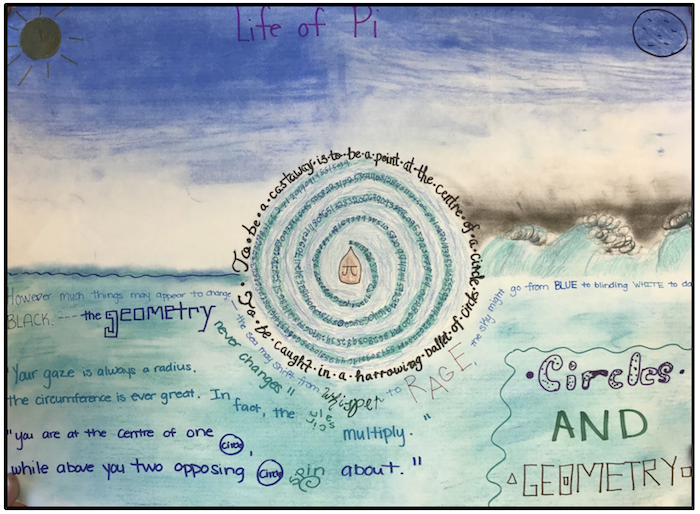 Life of Pi
To·be·a·castaway·is·to·be·a·point·at·the·centre·of·a·circle·
π
However much things may appear to change·
the sea may shift from whisper to RAGE, the sky might go from BLUE to blinding WHITE to da
BLACK. --- the geometry never changes"
To·be·caught·in·a·harrowing·ballet·of·circles·
"Your gaze is always a radius.
the circumference is ever great. In fact, the circles multiply."
"you are at the centre of one circle,
while above you two opposing circle spin about."
·Circles·
AND
GEOMETRY